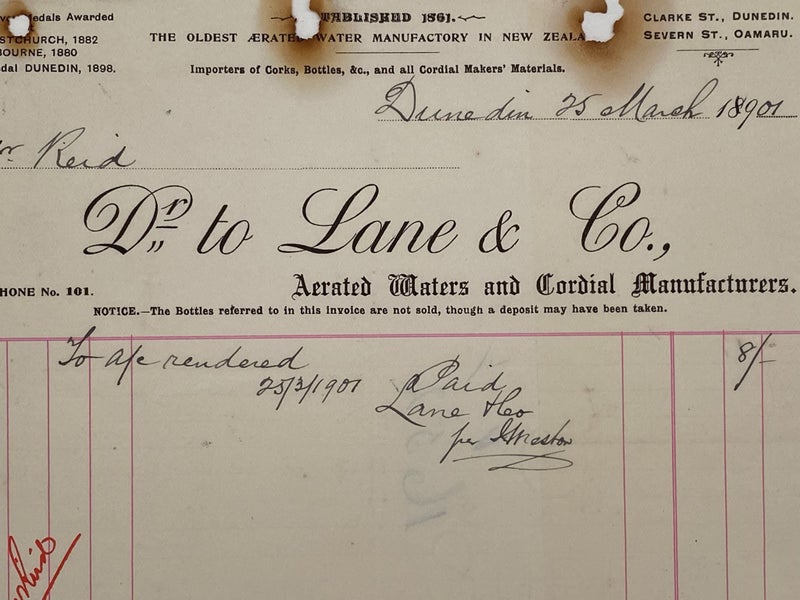 Medals Awarded
STCHURCH, 1882
BOURNE, 1880
dal DUNEDIN, 1898.
TABLISHED 1861.
THE OLDEST ÆRATED WATER MANUFACTORY IN NEW ZEALA
Importers of Corks, Bottles, &c., and all Cordial Makers' Materials.
CLARKE ST., DUNEDIN.
SEVERN ST., OAMARU.
Dunedin 25 March 1901
Reid
Dr. to Lane & Co.,
HONE No. 101.
Aerated Waters and Cordial Manufacturers.
NOTICE.—The Bottles referred to in this invoice are not sold, though a deposit may have been taken.
To a/c rendered 8/-
25/3/1901 Paid
Lane & Co
per